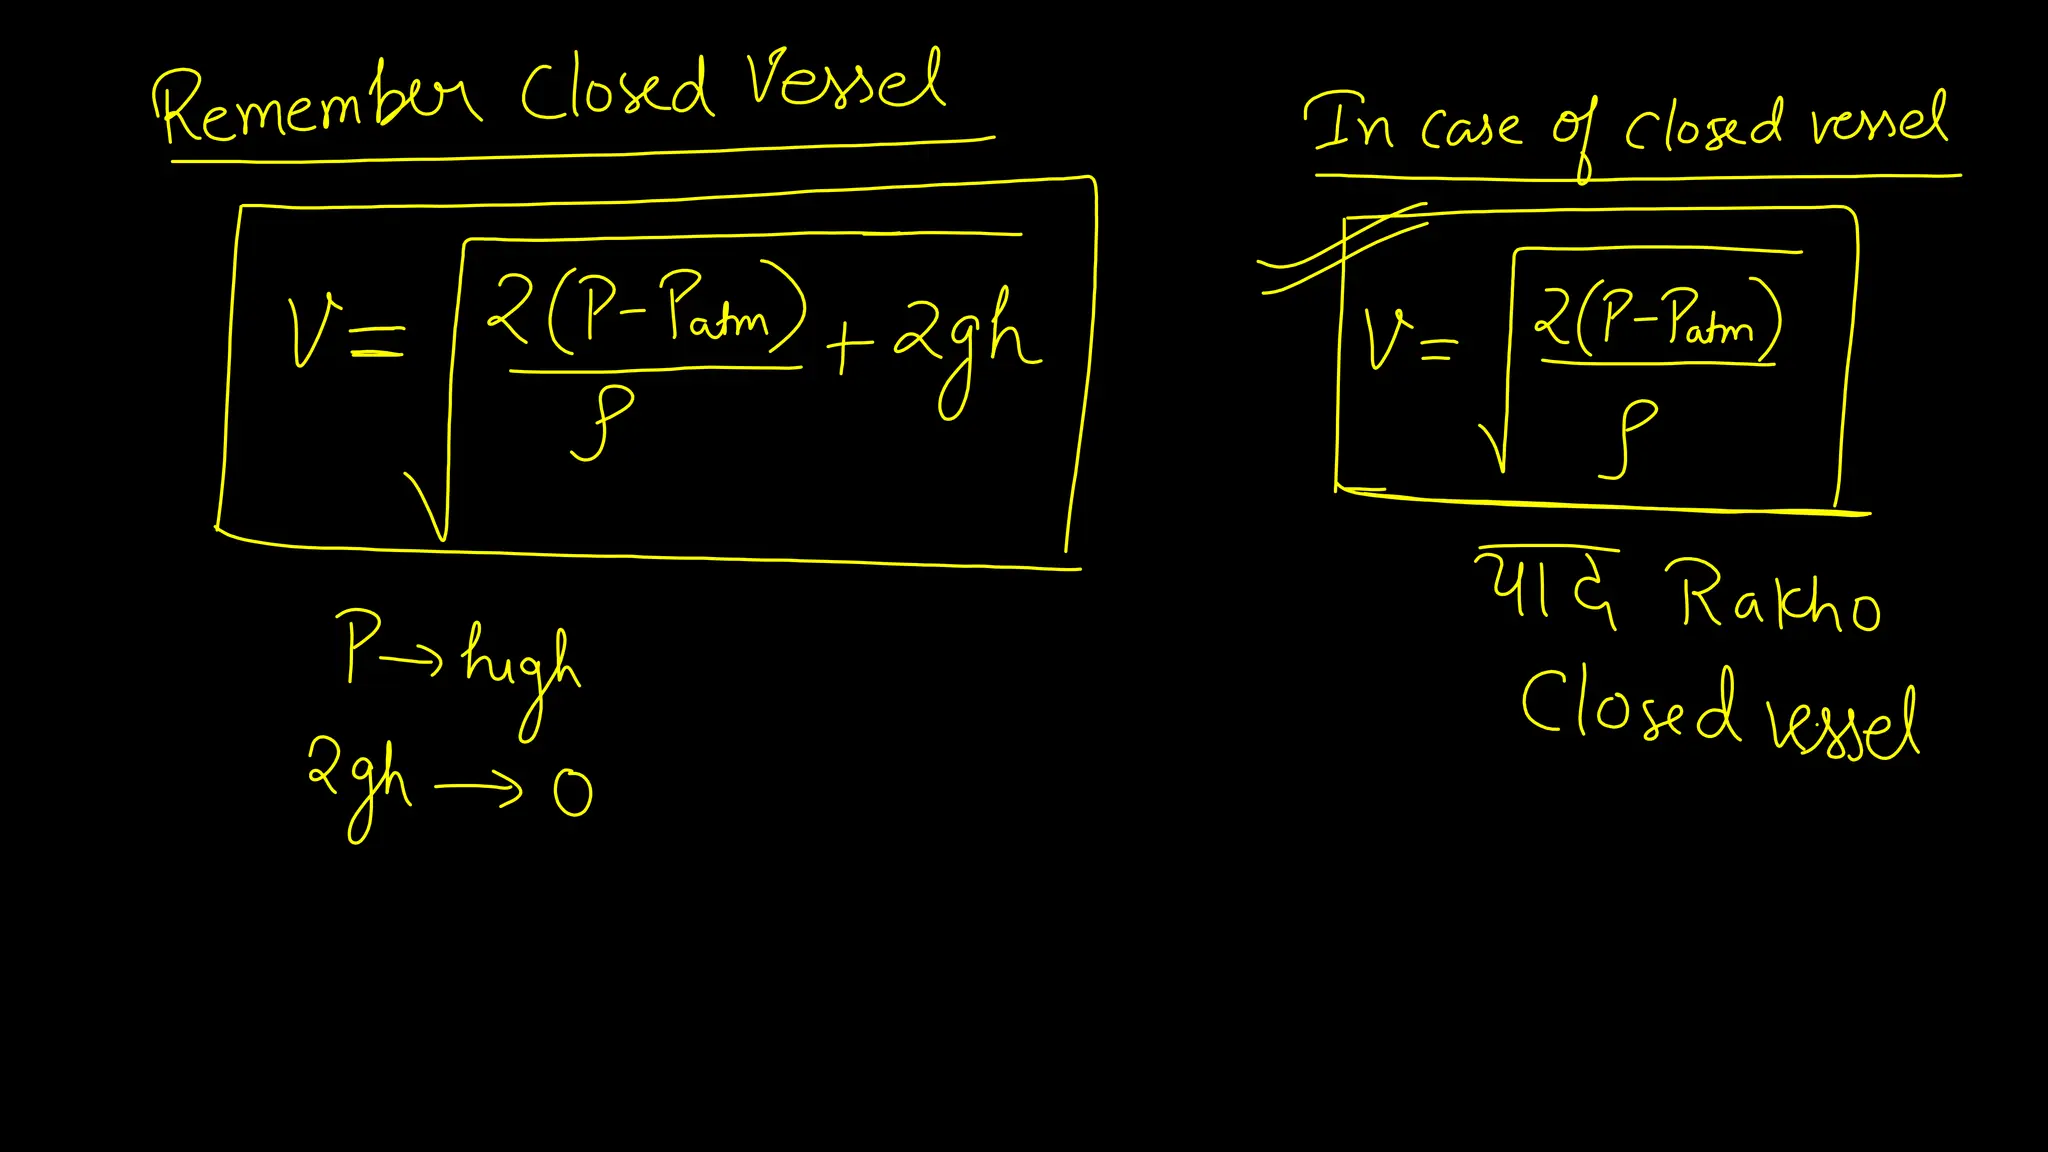 Remember Closed Vessel
V = √(2(P-Patm)/ρ + 2gh)
P → high
2gh → 0
In case of closed vessel
V = √(2(P-Patm)/ρ)
याद Rakho
Closed vessel